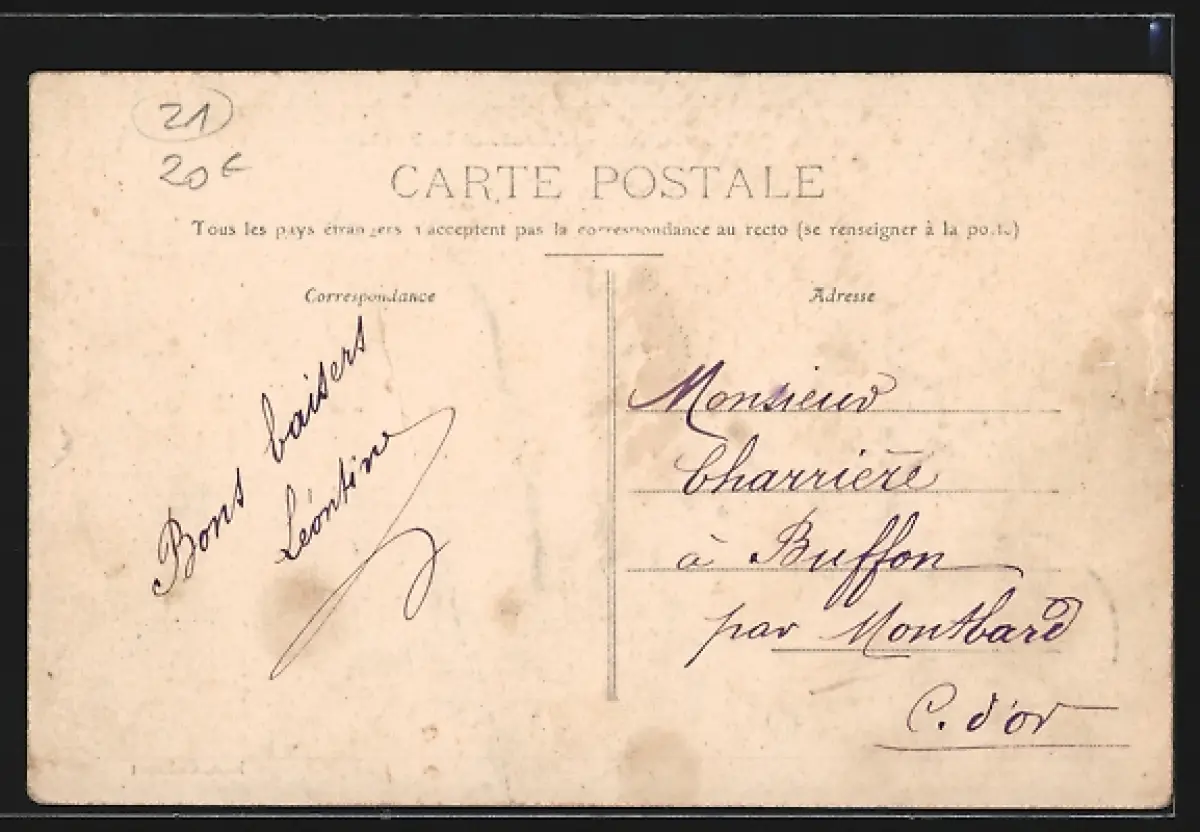 21
20€
CARTE POSTALE
Tous les pays étrangers n'acceptent pas la correspondance au recto (se renseigner à la poste)
Correspondance
Bons baisers
Léontine
Adresse
Monsieur
Charrière
à Buffon
par Montbard
C. d'or